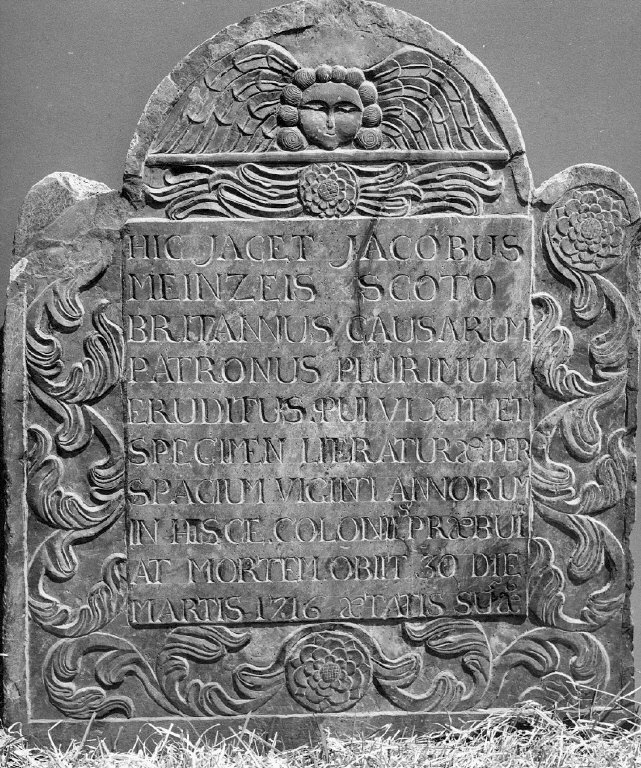 HIC JACET JACOBUS
MEINZEIS SCOTO
BRITANNUS CAUSARUM
PATRONUS PLURIMUM
ERUDITUS. QUI VIXIT ET
SPECIMEN LITERATURÆ. PER
SPACIUM VIGINTI ANNORUM
IN HISCE. COLONIIS PRÆBUI
AT MORTEM OBIIT 30 DIE
MARTIS 1716 ÆTATIS SUÆ